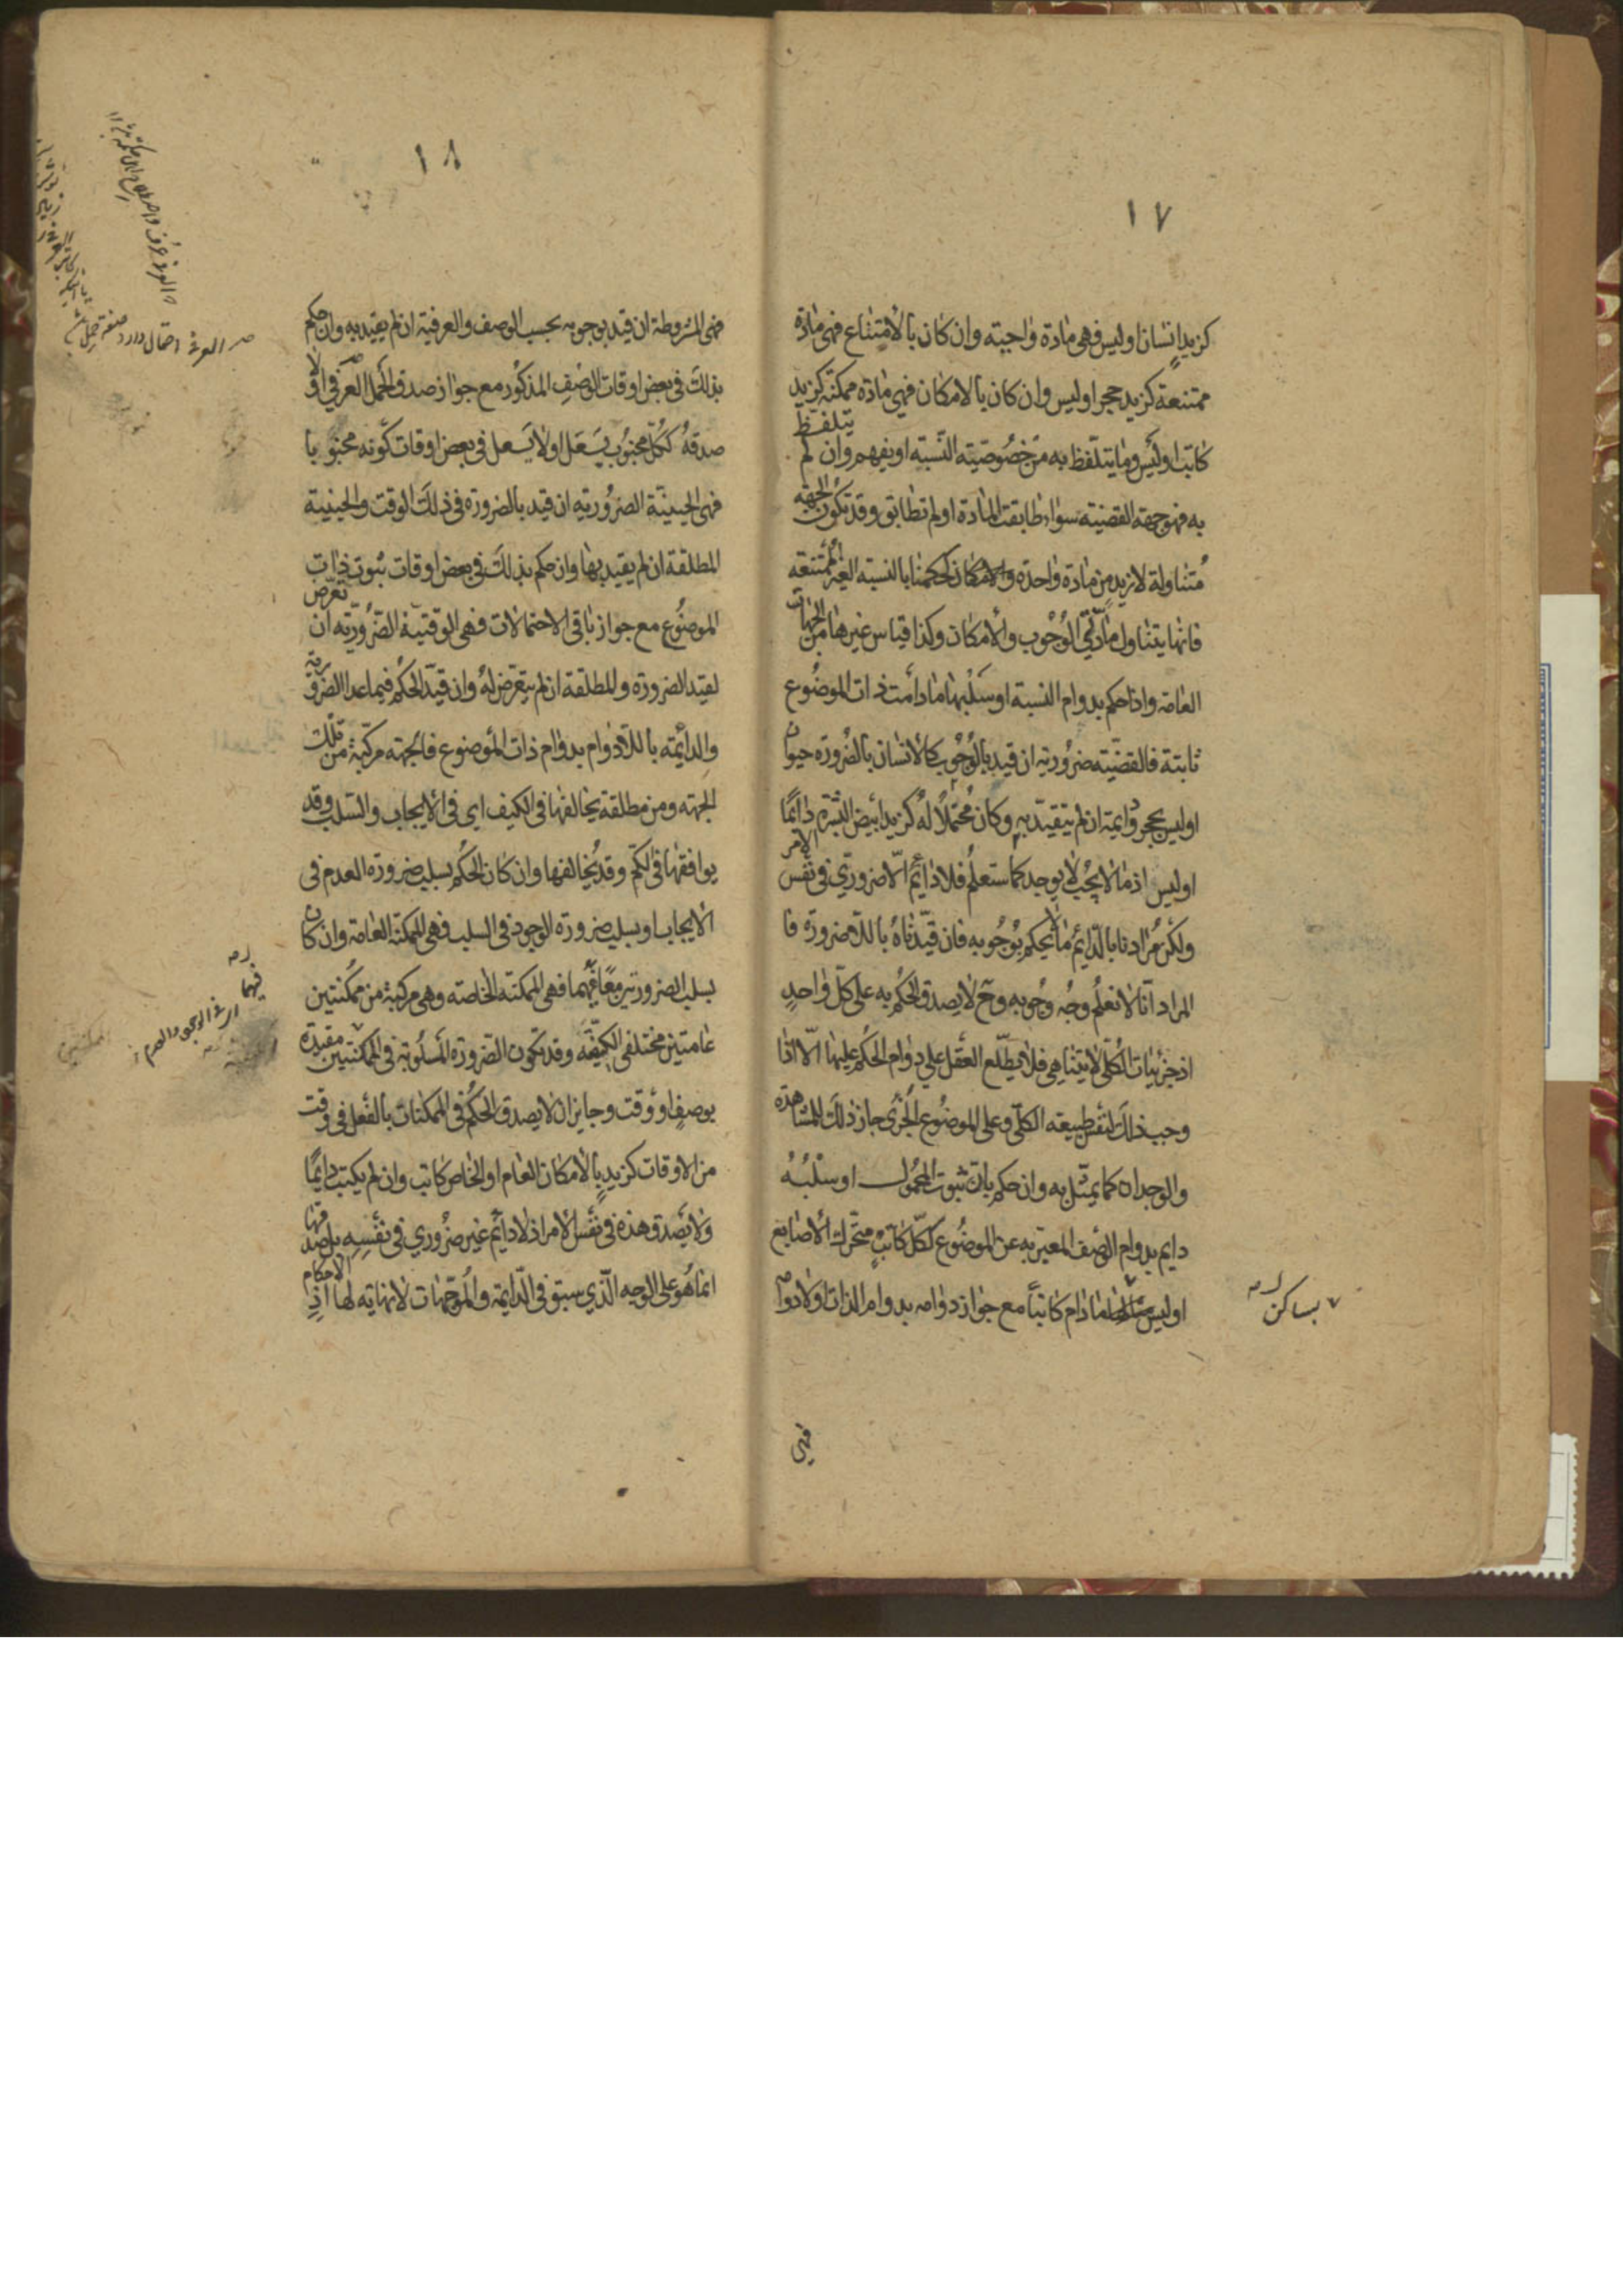 ١٧
كزيد انسان او ليس فهى مادة واجبته وان كان بالامتناع فهى مادة
ممتنعة كزيد حجر او ليس وان كان بالامكان فهى مادة ممكنة كزيد
كاتب اوليس وما يتلفظ به من خصوصيته النسبته او يفهم وان لم يتلفظ
به فهو جهته القضيته سواء طابقت المادة او لم تطابق وقد تكون الجهته
متناولة لازيد من مادة واحدة والامكان كحكمنا بالنسبته الغير الممتنعته
فانها يتناول مادتي الوجوب والامكان وكذا قياس غيرها من الجهات
العامته واذا حكم بدوام النسبة او سلبها ما دامت ذات الموضوع
ثابتة فالقضيته ضرورية ان قيد بالوجوب كالانسان بالضرورة حيوان
اوليس بحجر ودايمية ان لم يتقيد به وكان محتملا له كزيد ابيض البشرة دائما
اوليس اذ ما لا يجب لا يوجد كما ستعلم فلا دائم الا ضروري في نفس الامر
ولكن مرادنا بالدائم ما لا يحكم بوجوبه فان قيدناه باللاضرورة فا
المراد انا لا نعلم وجه وجوبه وح لا يصدق الحكم به على كل واحد
اذ جزئيات الكلى لا يتناهى فلا يطلع العقل على دوام الحكم عليها الا اذا
وجب ذلك لنفس طبيعته الكلى وعلى الموضوع الجزى جاز ذلك للمشاهدة
والوجدان كما يمثل به وان حكم بان ثبوت المحمول او سلبه
دايم بدوام الوصف المعبر به عن الموضوع ككل كاتب متحرك الاصابع
اوليس ما دام كاتبا مع جواز دوامه بدوام الذات او لا دوامه
٧ بساكن
فهى
١٨
فهى المشروطة ان قيد بوجوبه بحسب الوصف والعرفية ان لم يقيد به وان حكم
بذلك في بعض اوقات الوصف المذكور مع جواز صدق الحمل العرفي او لا
صدقه ككل مجنوب يسعل او لا يسعل في بعض اوقات كونه مجنوبا
فهى الحينية الضرورية ان قيد بالضرورة في ذلك الوقت والحينية
المطلقة ان لم يقيد بها وان حكم بذلك في بعض اوقات ثبوت ذات
الموضوع مع جواز باقى الاحتمالات فهى الوقتية الضرورية ان تعرض
لقيد الضرورة والمطلقة ان لم يتعرض له وان قيد الحكم فيما عدا الضرورية
والدائيمة باللادوام بدوام ذات الموضوع فالجهته مركبة من تلك
الجهته ومن مطلقة يخالفها في الكيف اى في الايجاب والسلب وقد
يوافقها في الكم وقد يخالفها وان كان الحكم بسلب ضرورة العدم فى
الايجاب او بسلب ضرورة الوجود في السلب فهى الممكنة العامته وان كان
بسلب الضرورتين معا فيهما فهى الممكنة الخاصته وهى مركبة من ممكنتين
عامتين مختلفى الكيفته وقد تكون الضرورة المسلوبة في الممكنتين مقيدة
بوصف او وقت وجايز ان لا يصدق الحكم في الممكنات بالفعل فى وقت
من الاوقات كزيد بالامكان العام او الخاص كاتب وان لم يكتب دايما
ولا يصدق هذه في نفس الامر اذ لا دايم غير ضروري في نفسه بل صدقها
انما هو على الوجه الذي سبق في الدايمة والموجهات لا نهاية لها اذ الاحكام
العرفي احتمال دارد
فيهما
اى في الوجود والعدم